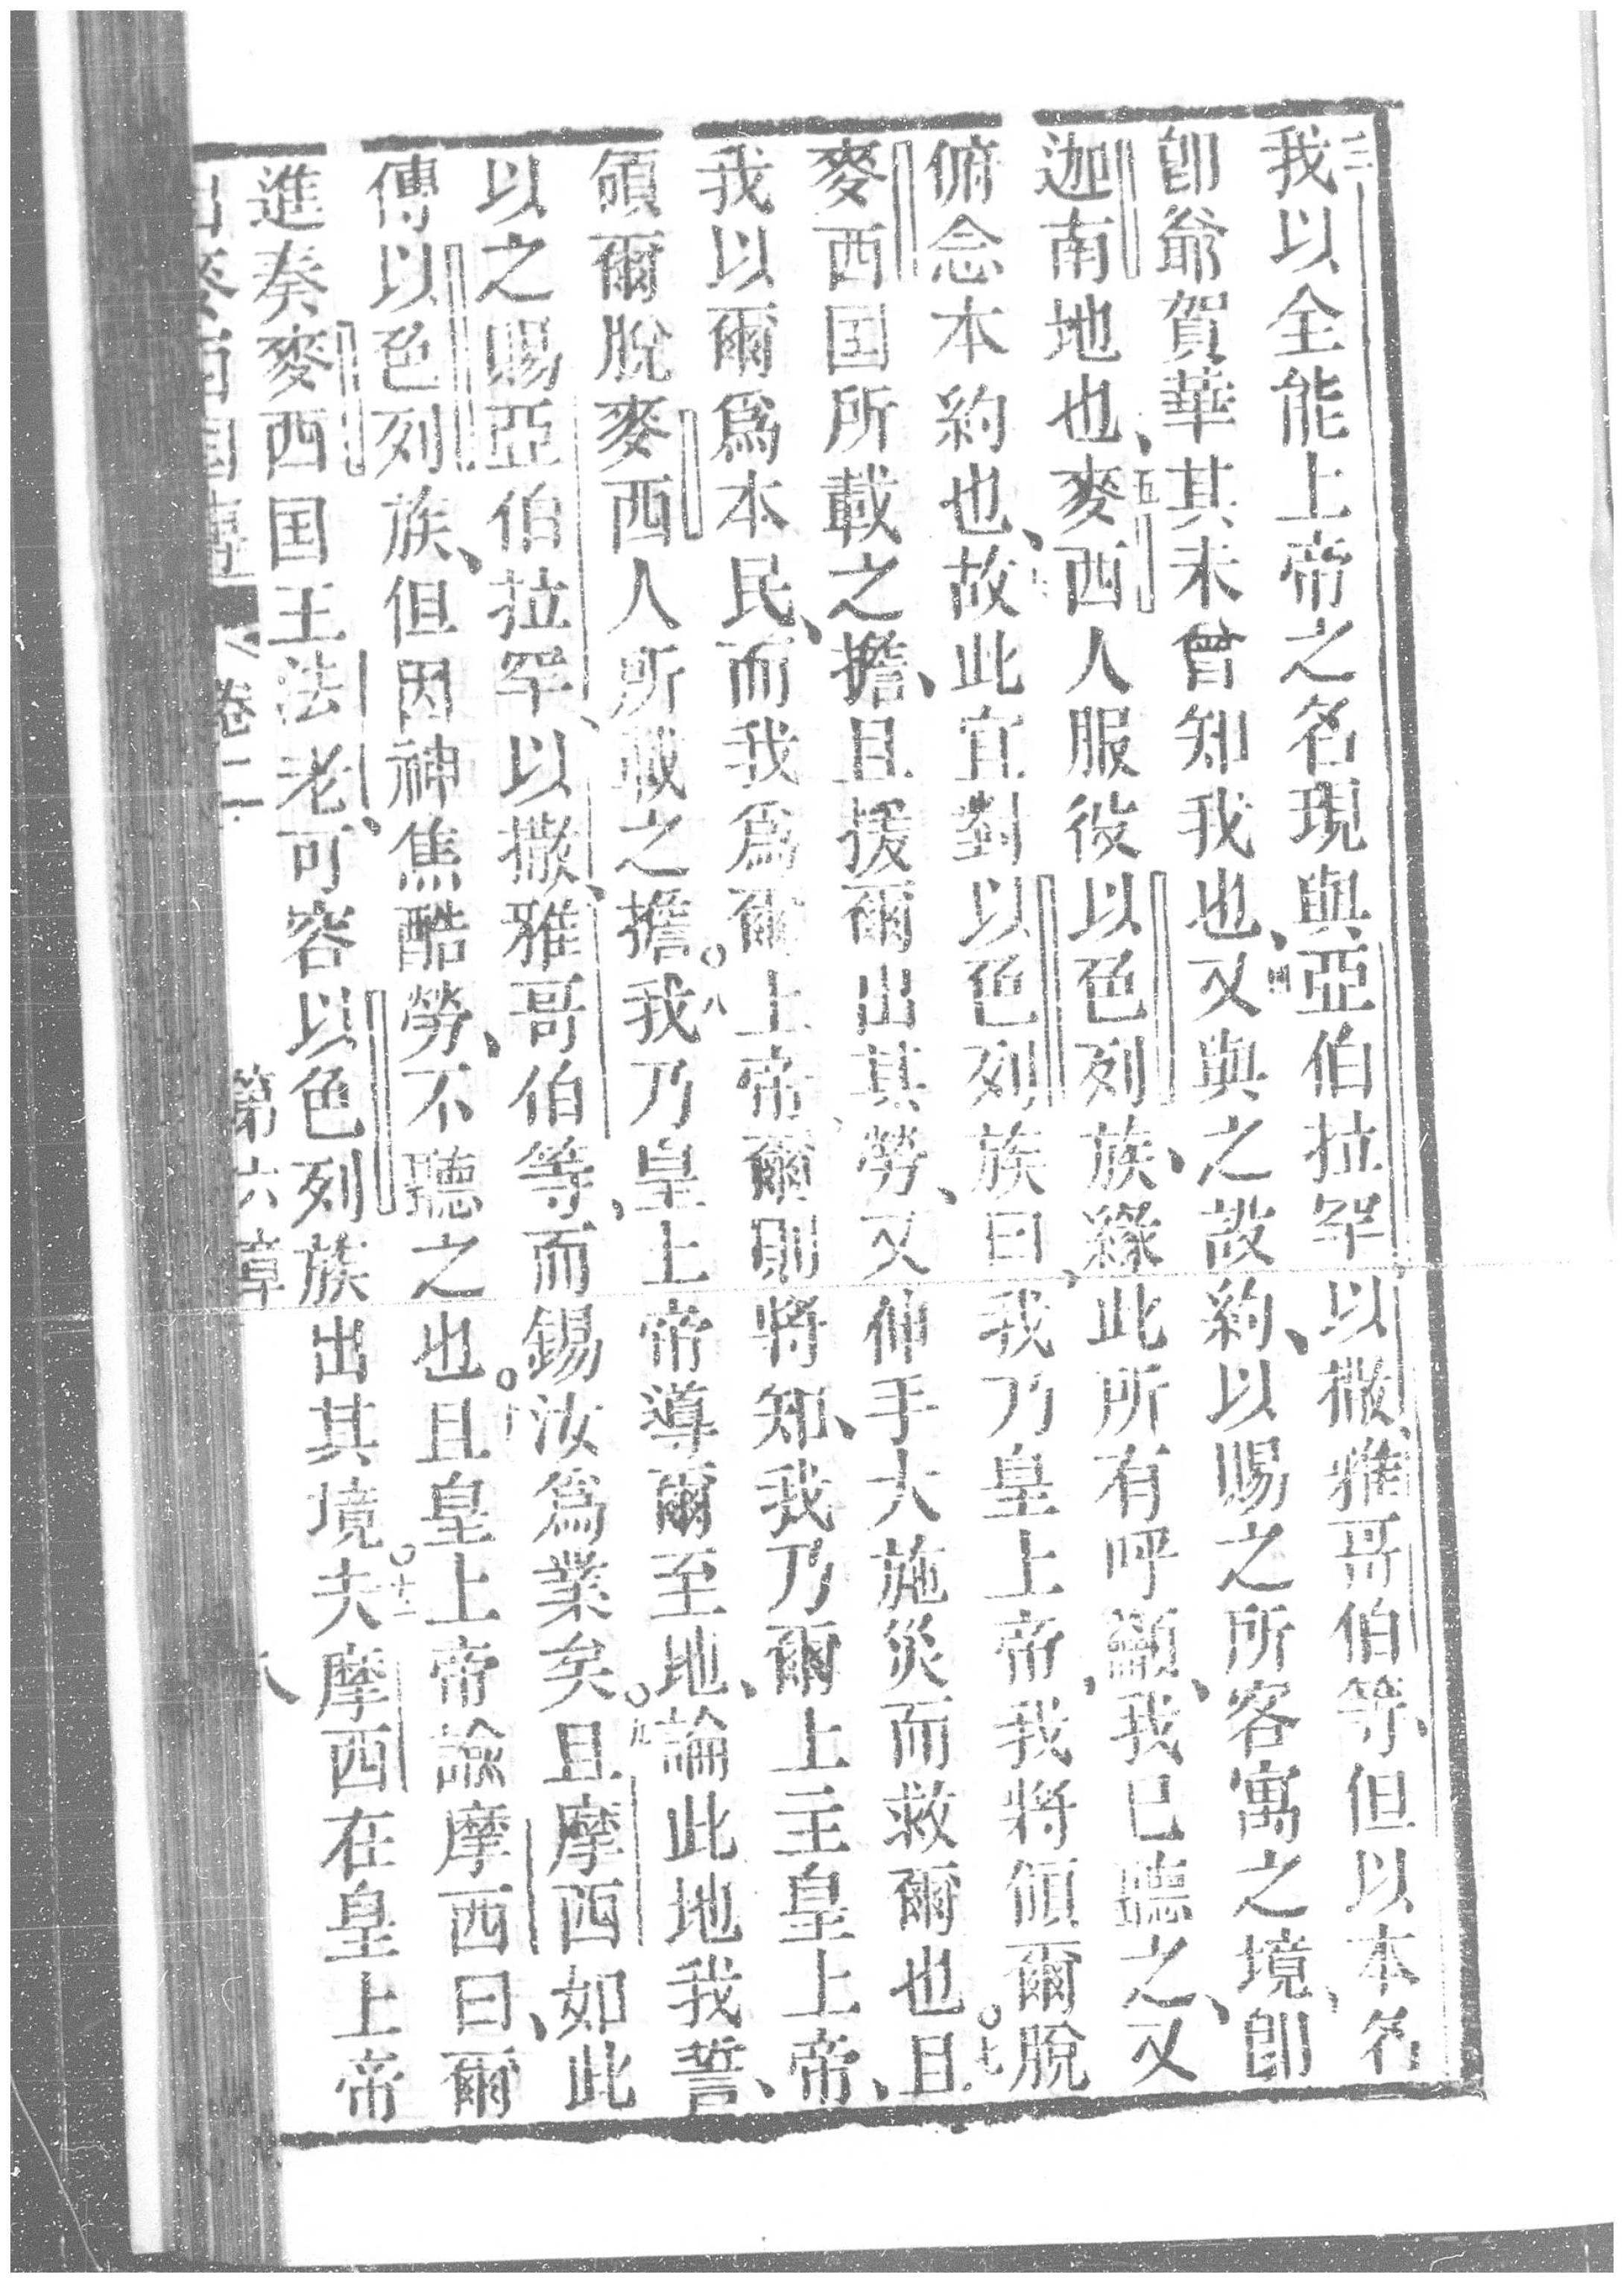 三我以全能上帝之名現與亞伯拉罕、以撒、雅哥伯等、但以本名
卽爺賀華其未曾知我也、四又與之設約、以賜之所客寓之境、卽
迦南地也、五麥西人服役以色列族、緣此所有呼籲、我已聽之、又
俯念本約也、故此宜對以色列族曰、我乃皇上帝、我將領爾脫
麥西国所載之擔、且援爾出其勞、又伸手大施災而救爾也。七且
我以爾爲本民、而我爲爾上帝、爾則將知、我乃爾上主皇上帝、
領爾脫麥西人所載之擔。八我乃皇上帝導爾至地、論此地我誓、
以之賜亞伯拉罕、以撒、雅哥伯等、而錫汝爲業矣。九且摩西如此
傳以色列族、但因神焦酷勞、不聽之也。十且皇上帝諭摩西曰、爾
進奏麥西国王法老、可容以色列族出其境。十二夫摩西在皇上帝
卷二 第六章 八